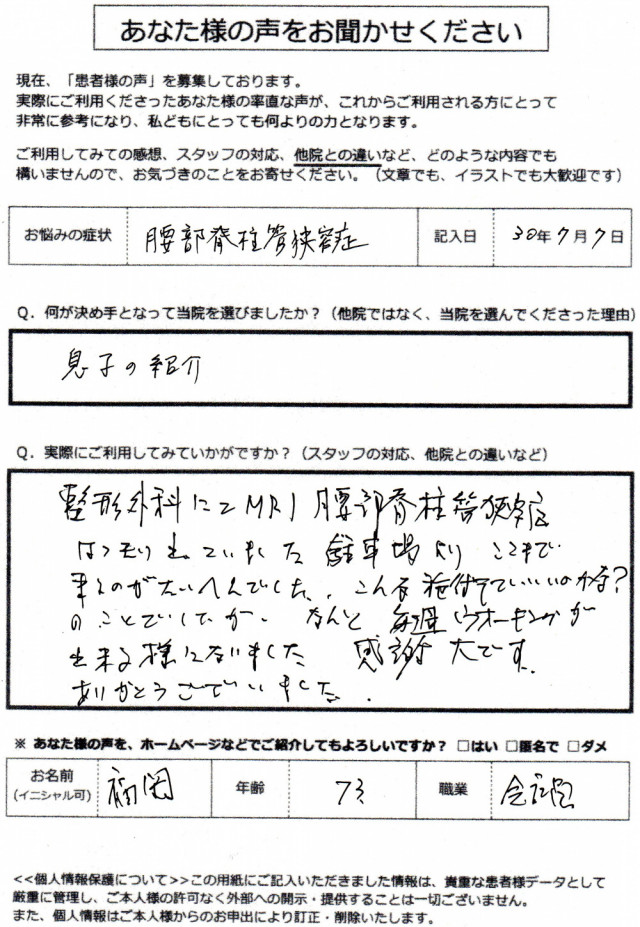 あなた様の声をお聞かせください
現在、「患者様の声」を募集しております。
実際にご利用くださったあなた様の率直な声が、これからご利用される方にとって
非常に参考になり、私どもにとっても何よりの力となります。
ご利用してみての感想、スタッフの対応、他院との違いなど、どのような内容でも
構いませんので、お気づきのことをお寄せください。（文章でも、イラストでも大歓迎です）
お悩みの症状 腰部脊柱管狭窄症 記入日 30年7月7日
Q．何が決め手となって当院を選びましたか？（他院ではなく、当院を選んでくださった理由）
息子の紹介
Q．実際にご利用してみていかがですか？（スタッフの対応、他院との違いなど）
整形外科にてMRI 腰部脊柱管狭窄症
はっきり出ていました 駐車場より ここまで
来るのがたいへんでした。こんな 施術でいいのかな？
のことでしたが、なんと 毎週 ウオーキングが
出来る様になりました 感謝 大です。
ありがとうございました。
※ あなた様の声を、ホームページなどでご紹介してもよろしいですか？ □はい □匿名で □ダメ
お名前 福岡 年齢 73 職業
(イニシャル可)
<<個人情報保護について>>この用紙にご記入いただきました情報は、貴重な患者様データとして
厳重に管理し、ご本人様の許可なく外部への開示・提供することは一切ございません。
また、個人情報はご本人様からのお申出により訂正・削除いたします。